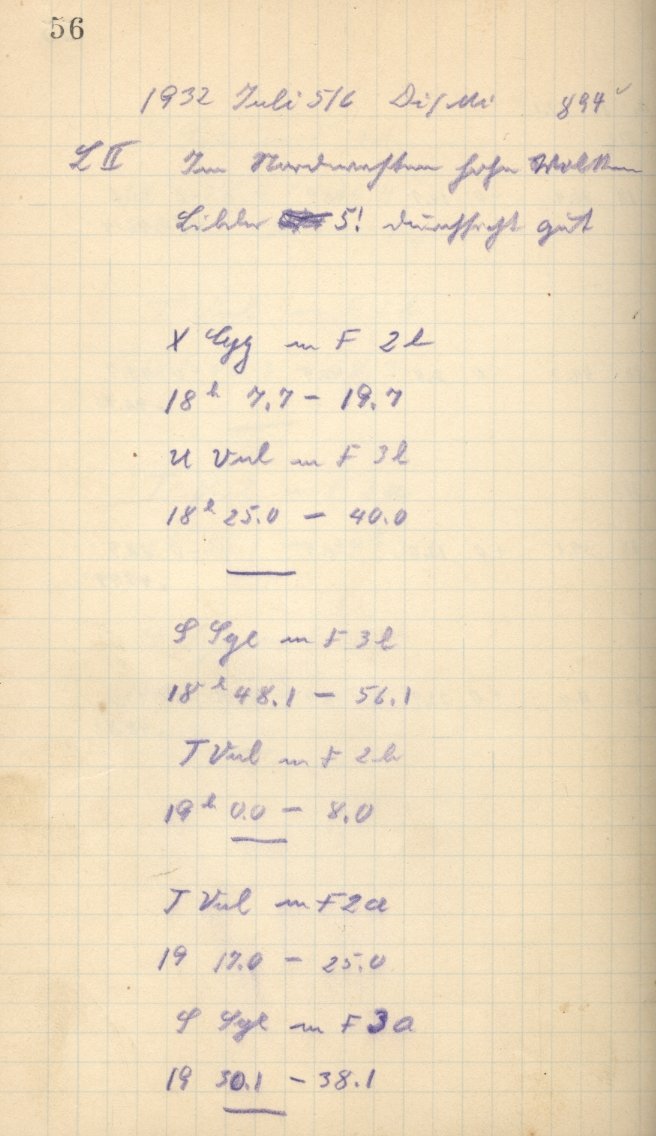 56
1932 Juli 5/6 Di/Mi 894
L II Im Nordwesten hohe Wolken
Bilder 5! Durchsicht gut
X Cyg m F 2b
18h 7.7 – 19.7
U Vul m F 3b
18h 25.0 – 40.0
S Sge m F 3b
18h 48.1 – 56.1
T Vul m F 2b
19h 0.0 – 8.0
T Vul m F 2a
19 17.0 – 25.0
S Sge m F 3a
19 30.1 – 38.1